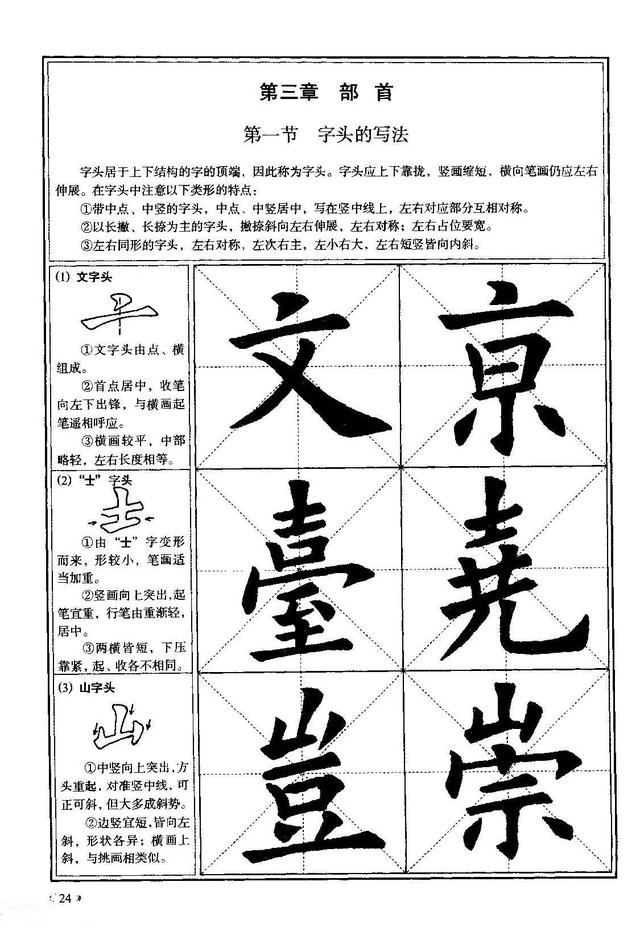 第三章 部 首
第一节 字头的写法
字头居于上下结构的字的顶端，因此称为字头。字头应上下靠拢，竖画缩短、横向笔画仍应左右
伸展。在字头中注意以下类形的特点：
①带中点、中竖的字头，中点、中竖居中，写在竖中线上，左右对应部分互相对称。
②以长撇、长捺为主的字头，撇捺斜向左右伸展，左右对称；左右占位要宽。
③左右同形的字头，左右对称，左次右主，左小右大，左右短竖皆向内斜。
(1) 文字头
①文字头由点、横
组成。
②首点居中，收笔
向左下出锋，与横画起
笔遥相呼应。
③横画较平，中部
略轻，左右长度相等。
文 亰
(2) “士”字头
①由“士”字变形
而来，形较小，笔画适
当加重。
②竖画向上突出，起
笔宜重，行笔由重渐轻，
居中。
③两横皆短，下压
靠紧，起、收各不相同。
臺 堯
(3) 山字头
①中竖向上突出，方
头重起，对准竖中线，可
正可斜，但大多成斜势。
②边竖宜短，皆向左
斜，形状各异；横画上
斜，与挑画相类似。
豈 崇
24